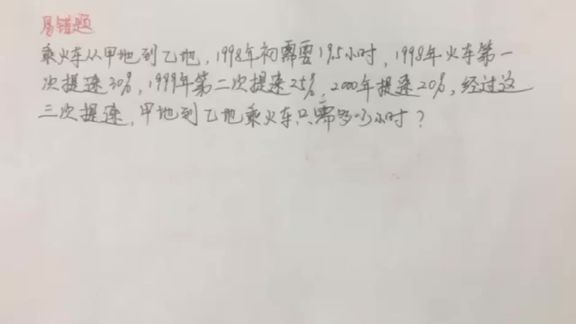 易错题
乘火车从甲地到乙地，1998年初需要19.5小时，1998年火车第一
次提速30%，1999年第二次提速25%，2000年提速20%，经过这
三次提速，甲地到乙地乘火车只需多少小时？